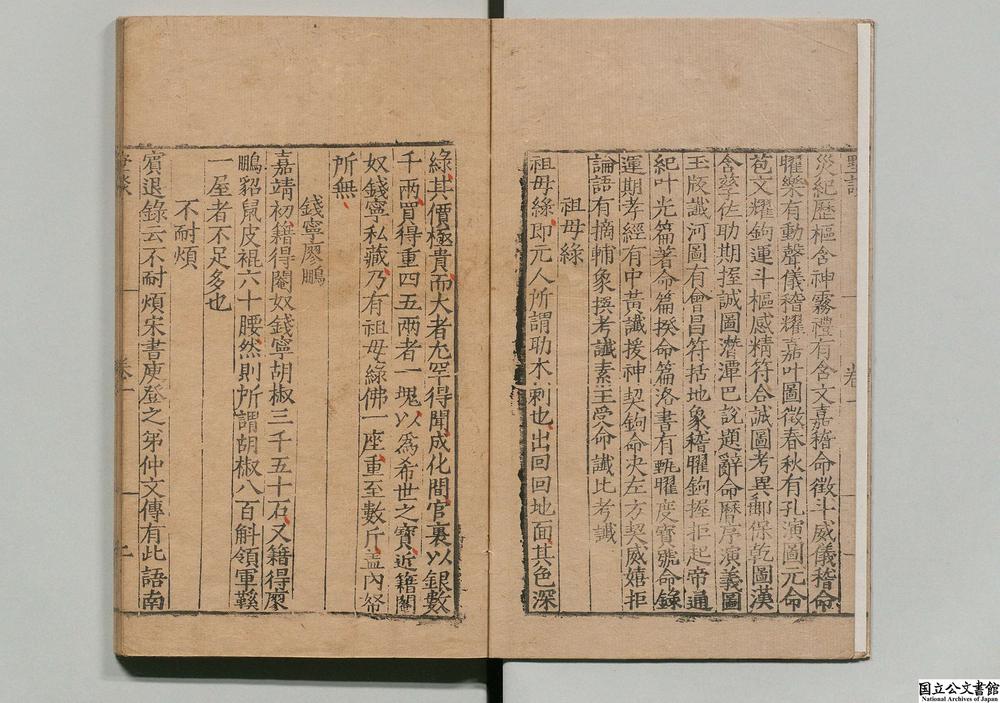 災紀歷樞含神霧禮有含文嘉稽命徵斗威儀稽命
曜樂有動聲儀稽耀嘉叶圖徵春秋有孔演圖元命
苞文耀鉤運斗樞感精符合誠圖考異郵保乾圖漢
含孳佐助期握誠圖潛潭巴說題辭命曆序演義圖
玉版讖河圖有會昌符括地象稽曜鉤握拒起帝通
紀叶光篇著命篇揆命篇洛書有甄曜度寶號命錄
運期孝經有中黃讖援神契鉤命決左方契威嬉拒
論語有摘輔象撰考讖素王受命讖比考讖
祖母綠
祖母綠即元人所謂助木剌也出回回地面其色深
綠其價極貴而大者尤罕得聞成化間官裏以銀數
千兩買得重四五兩者一塊以爲希世之寶近籍閹
奴錢寧私藏乃有祖母綠佛一座重至數斤盖内帑
所無
錢寧廖鵬
嘉靖初籍得閹奴錢寧胡椒三千五十石又籍得廖
鵬貂鼠皮裩六十腰然則所謂胡椒八百斛領軍鞵
一屋者不足多也
不耐煩
賓退錄云不耐煩宋書庾登之弟仲文傳有此語南
卷一
二
国立公文書館
National Archives of Japan